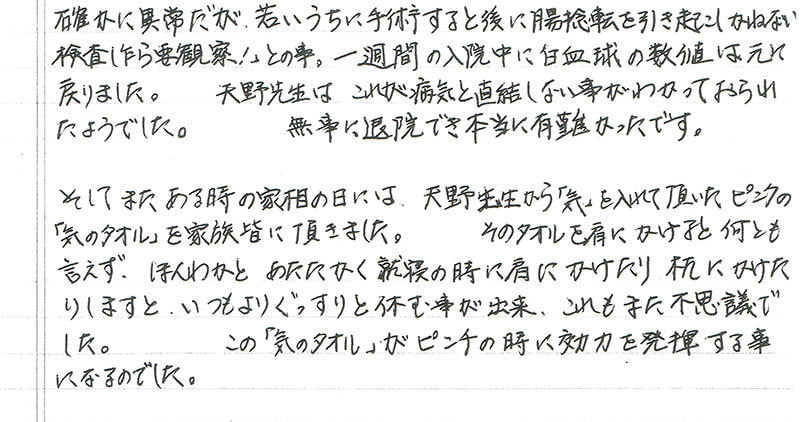 確かに異常だが、若いうちに手術すると後に腸捻転を引き起こしかねない
検査しながら要観察！」との事。一週間の入院中に白血球の数値は元に
戻りました。 天野先生は これが病気と直結しない事がわかっておられ
たようでした。 無事に退院でき本当に有難かったです。
そしてまたある時の家相の日には、天野先生から「気」を入れて頂いたピンクの
「気のタオル」を家族皆に頂きました。 そのタオルを肩にかけると何とも
言えず、ほんわかと あたたかく就寝の時に肩にかけたり 枕にかけた
りしますと、いつもよりぐっすりと休む事が出来、これもまた不思議で
した。 この「気のタオル」がピンチの時に効力を発揮する事
になるのでした。